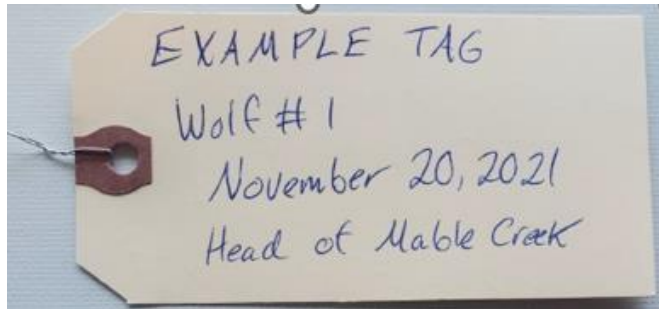 EXAMPLE TAG
Wolf # 1
November 20, 2021
Head of Mable Creek